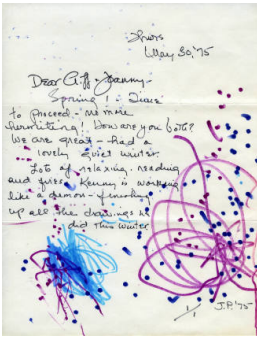 Thurs
May 30, '75
Dear Giff - Joanny -
Spring! - Time
to proceed - no more
hermiting! How are you both?
We are great - had a
lovely quiet winter.
Lots of relaxing, reading
and fires. Kenny is working
like a demon - finishing
up all the drawings he
did this winter
1/1 J.P. '75